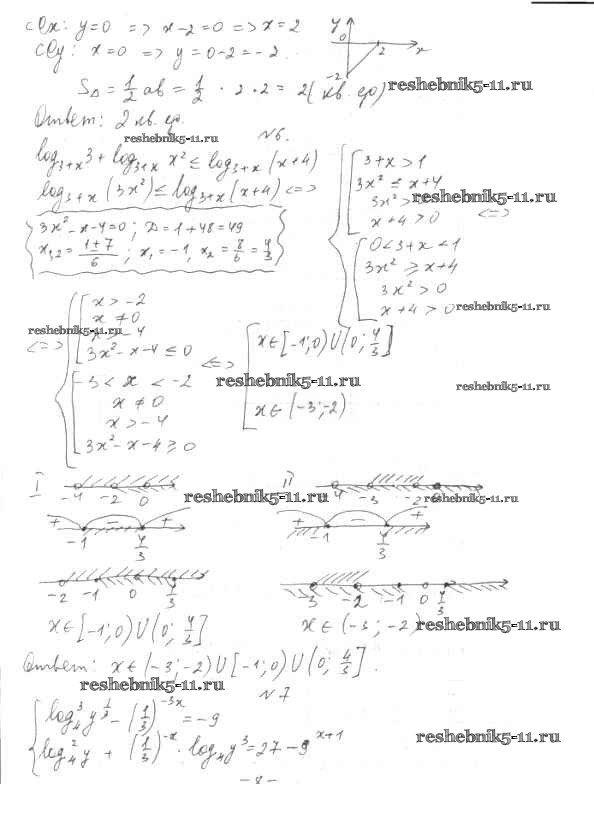 с Ox: y=0 => x-2=0 => x=2
с Oy: x=0 => y=0-2=-2.
y
0
2
x
-2
S△ = 1/2 ab = 1/2 · 2·2 = 2 (кв. ед.)
reshebnik5-11.ru
Ответ: 2 кв. ед.
reshebnik5-11.ru
N6.
log_{3+x} 3 + log_{3+x} x² ≤ log_{3+x} (x+4)
log_{3+x} (3x²) ≤ log_{3+x} (x+4) <=>
3+x > 1
3x² ≤ x+4
reshebnik5-11.ru
3x² > 0
x+4 > 0
<=>
0<3+x<1
3x² ≥ x+4
3x² > 0
x+4 > 0
reshebnik5-11.ru
3x²-x-4=0; D=1+48=49
x_{1,2} = (1±7)/6; x₁=-1, x₂=8/6=4/3
<=>
x > -2
x ≠ 0
reshebnik5-11.ru
x > -4
3x²-x-4 ≤ 0
-3 < x < -2
x ≠ 0
x > -4
3x²-x-4 ≥ 0
<=>
x∈[-1;0)∪(0; 4/3]
reshebnik5-11.ru
reshebnik5-11.ru
x∈(-3;-2)
I
-4 -2 0
reshebnik5-11.ru
II
-4 -3 -2 0
reshebnik5-11.ru
+ - +
-1 4/3
+ - +
-1 4/3
-2 -1 0 4/3
-3 -2 -1 0 4/3
x∈[-1;0)∪(0; 4/3]
x∈(-3;-2)
reshebnik5-11.ru
Ответ: x∈(-3;-2)∪[-1;0)∪(0; 4/3].
reshebnik5-11.ru
N7
log₄³ y^{1/3} - (1/3)^{-3x} = -9
log₄² y + (1/3)^{-x} · log₄ y³ = 27 - 9^{x+1}
reshebnik5-11.ru
-8-